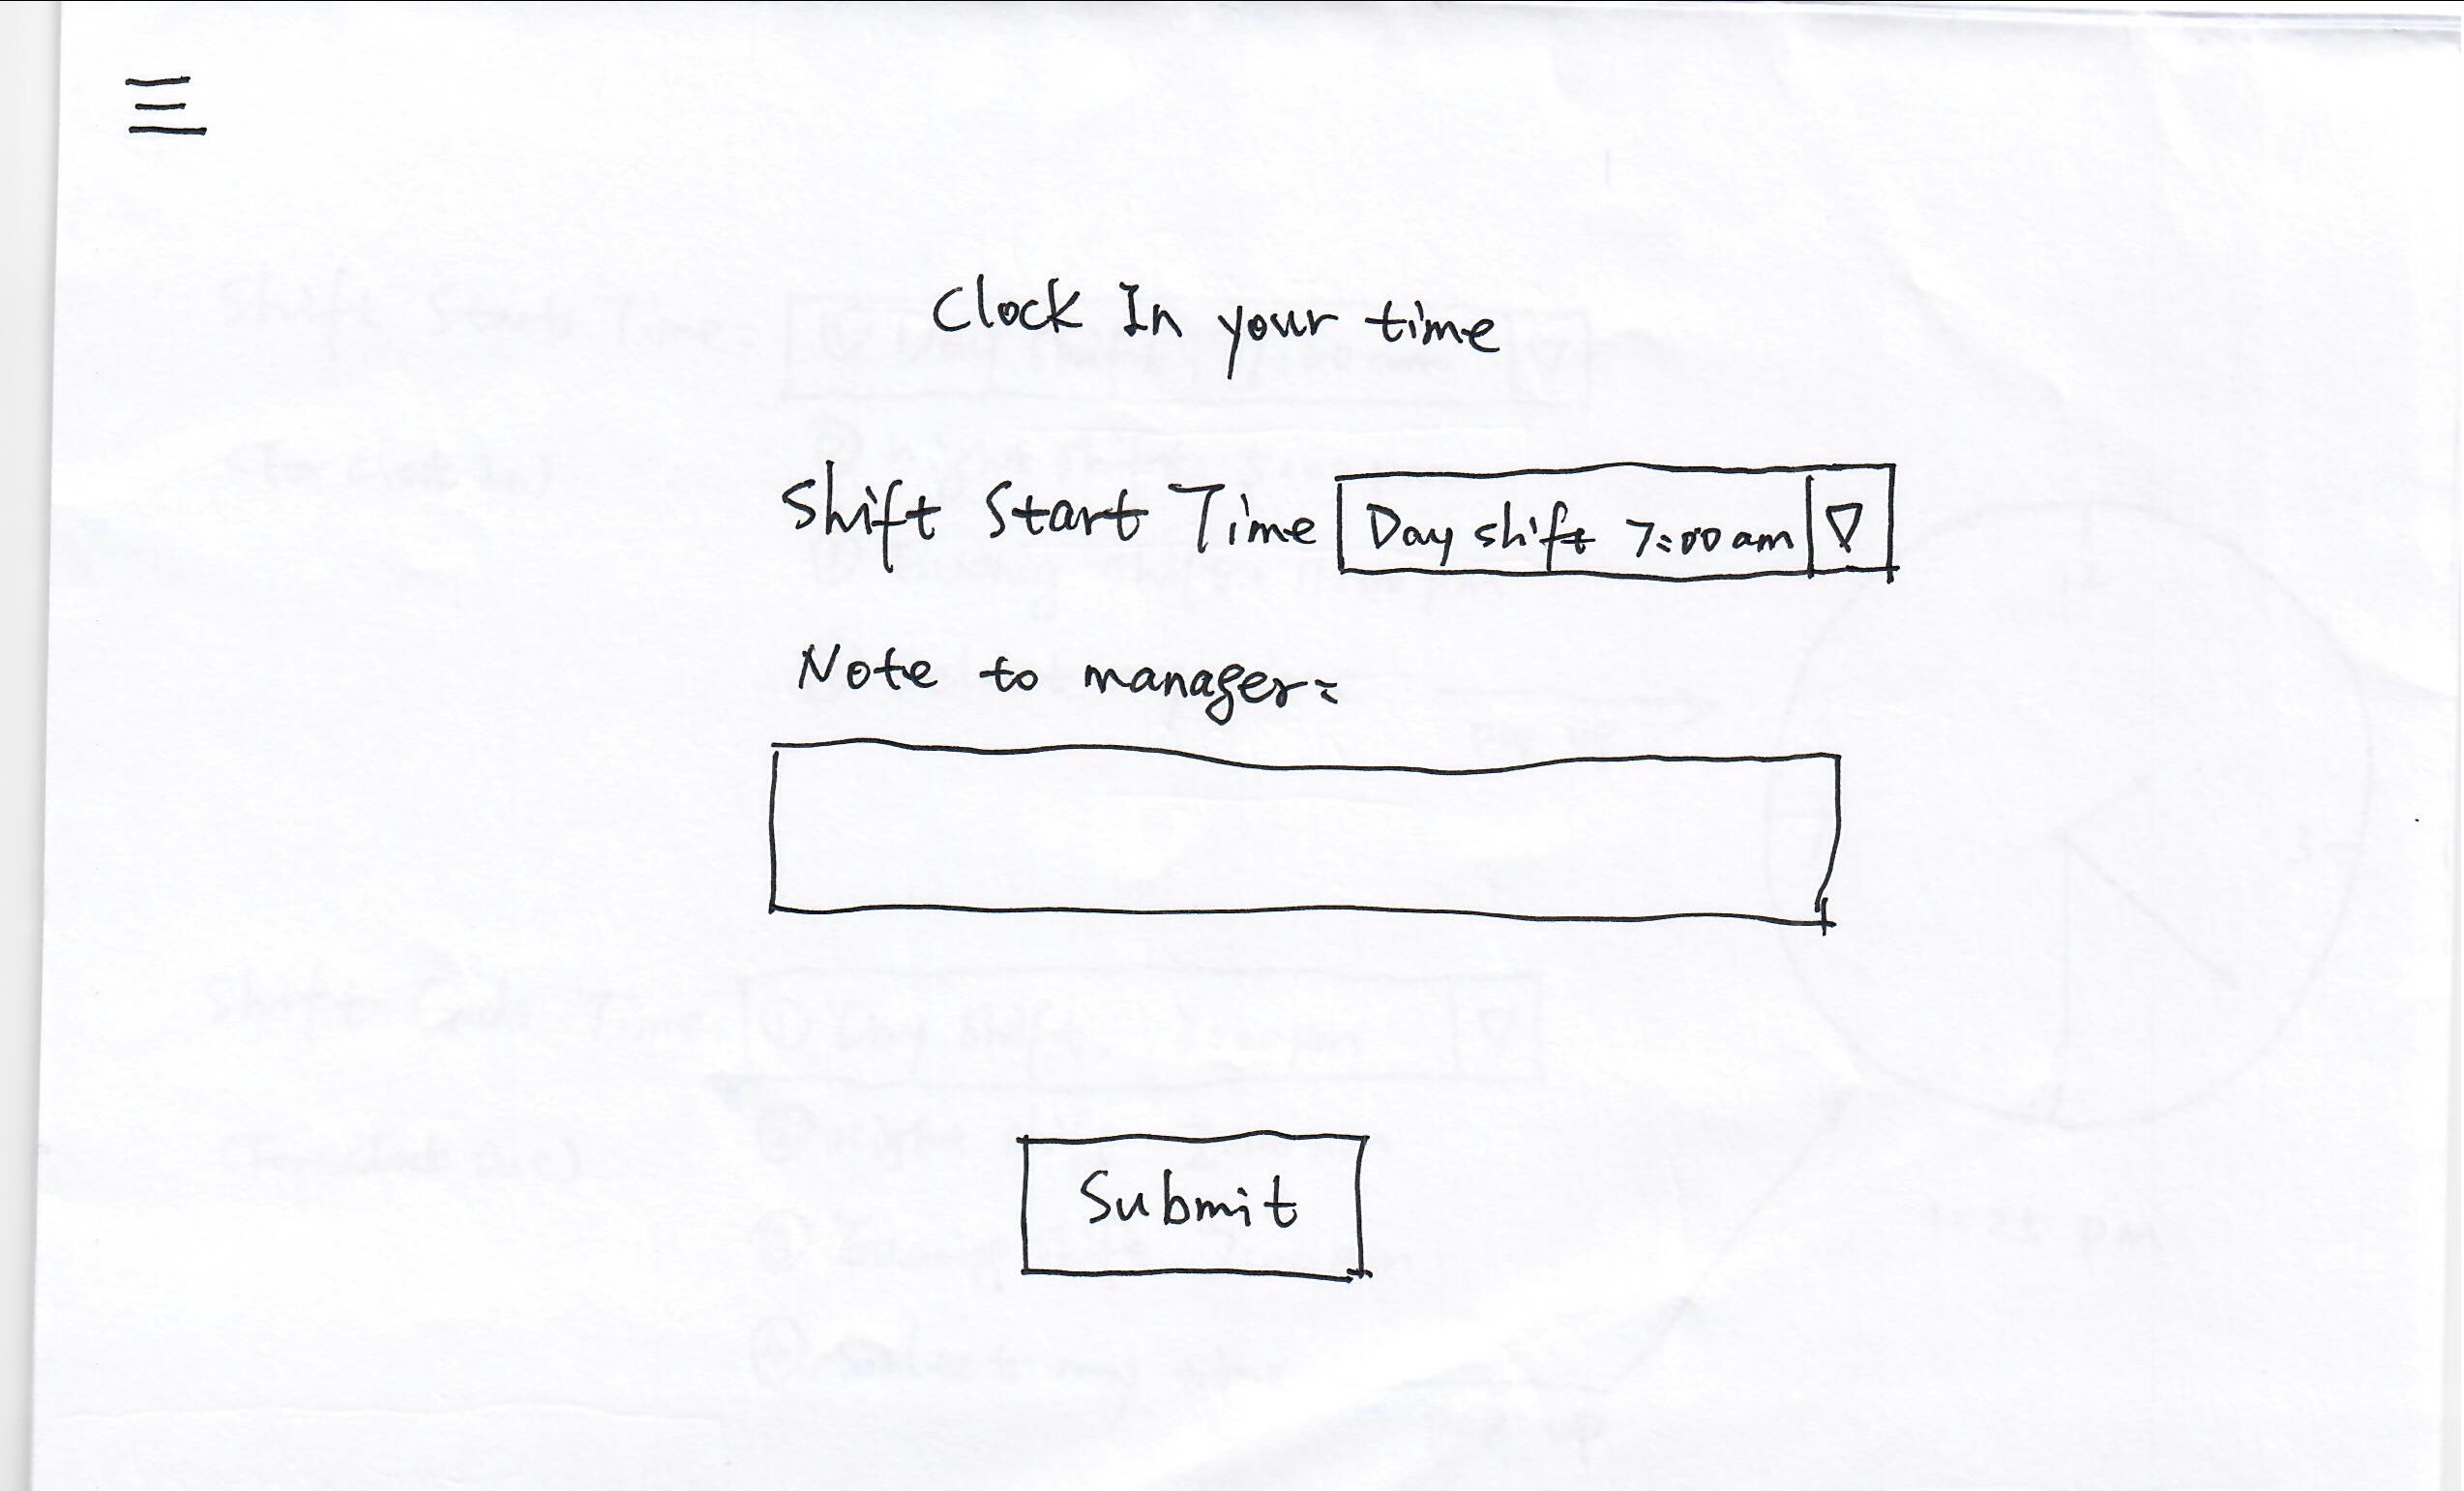 Clock In your time
Shift Start Time Day shift 7:00 am
Note to manager:
Submit